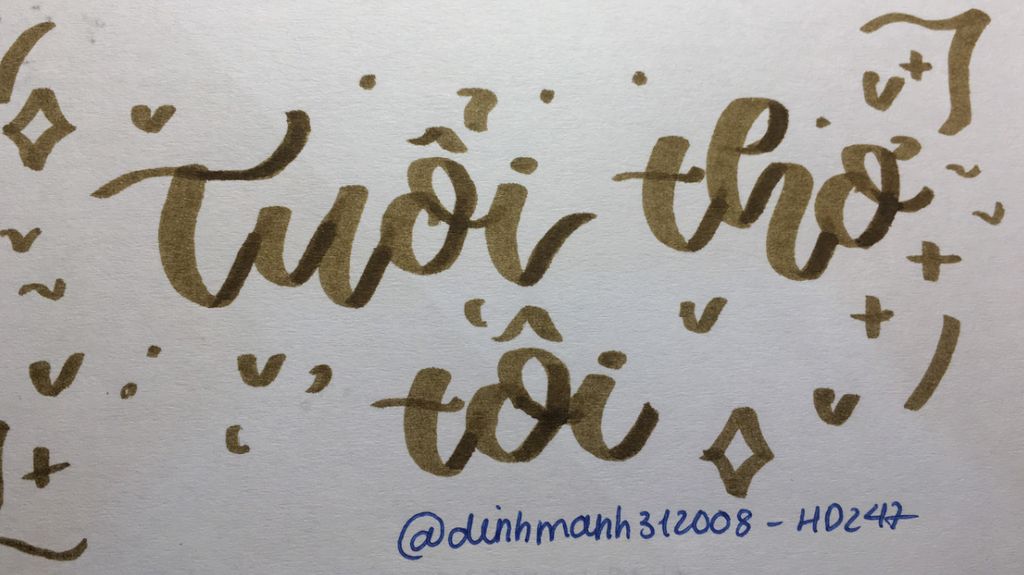 Tuổi thơ
tôi
@dinhmanh312008 - HD247